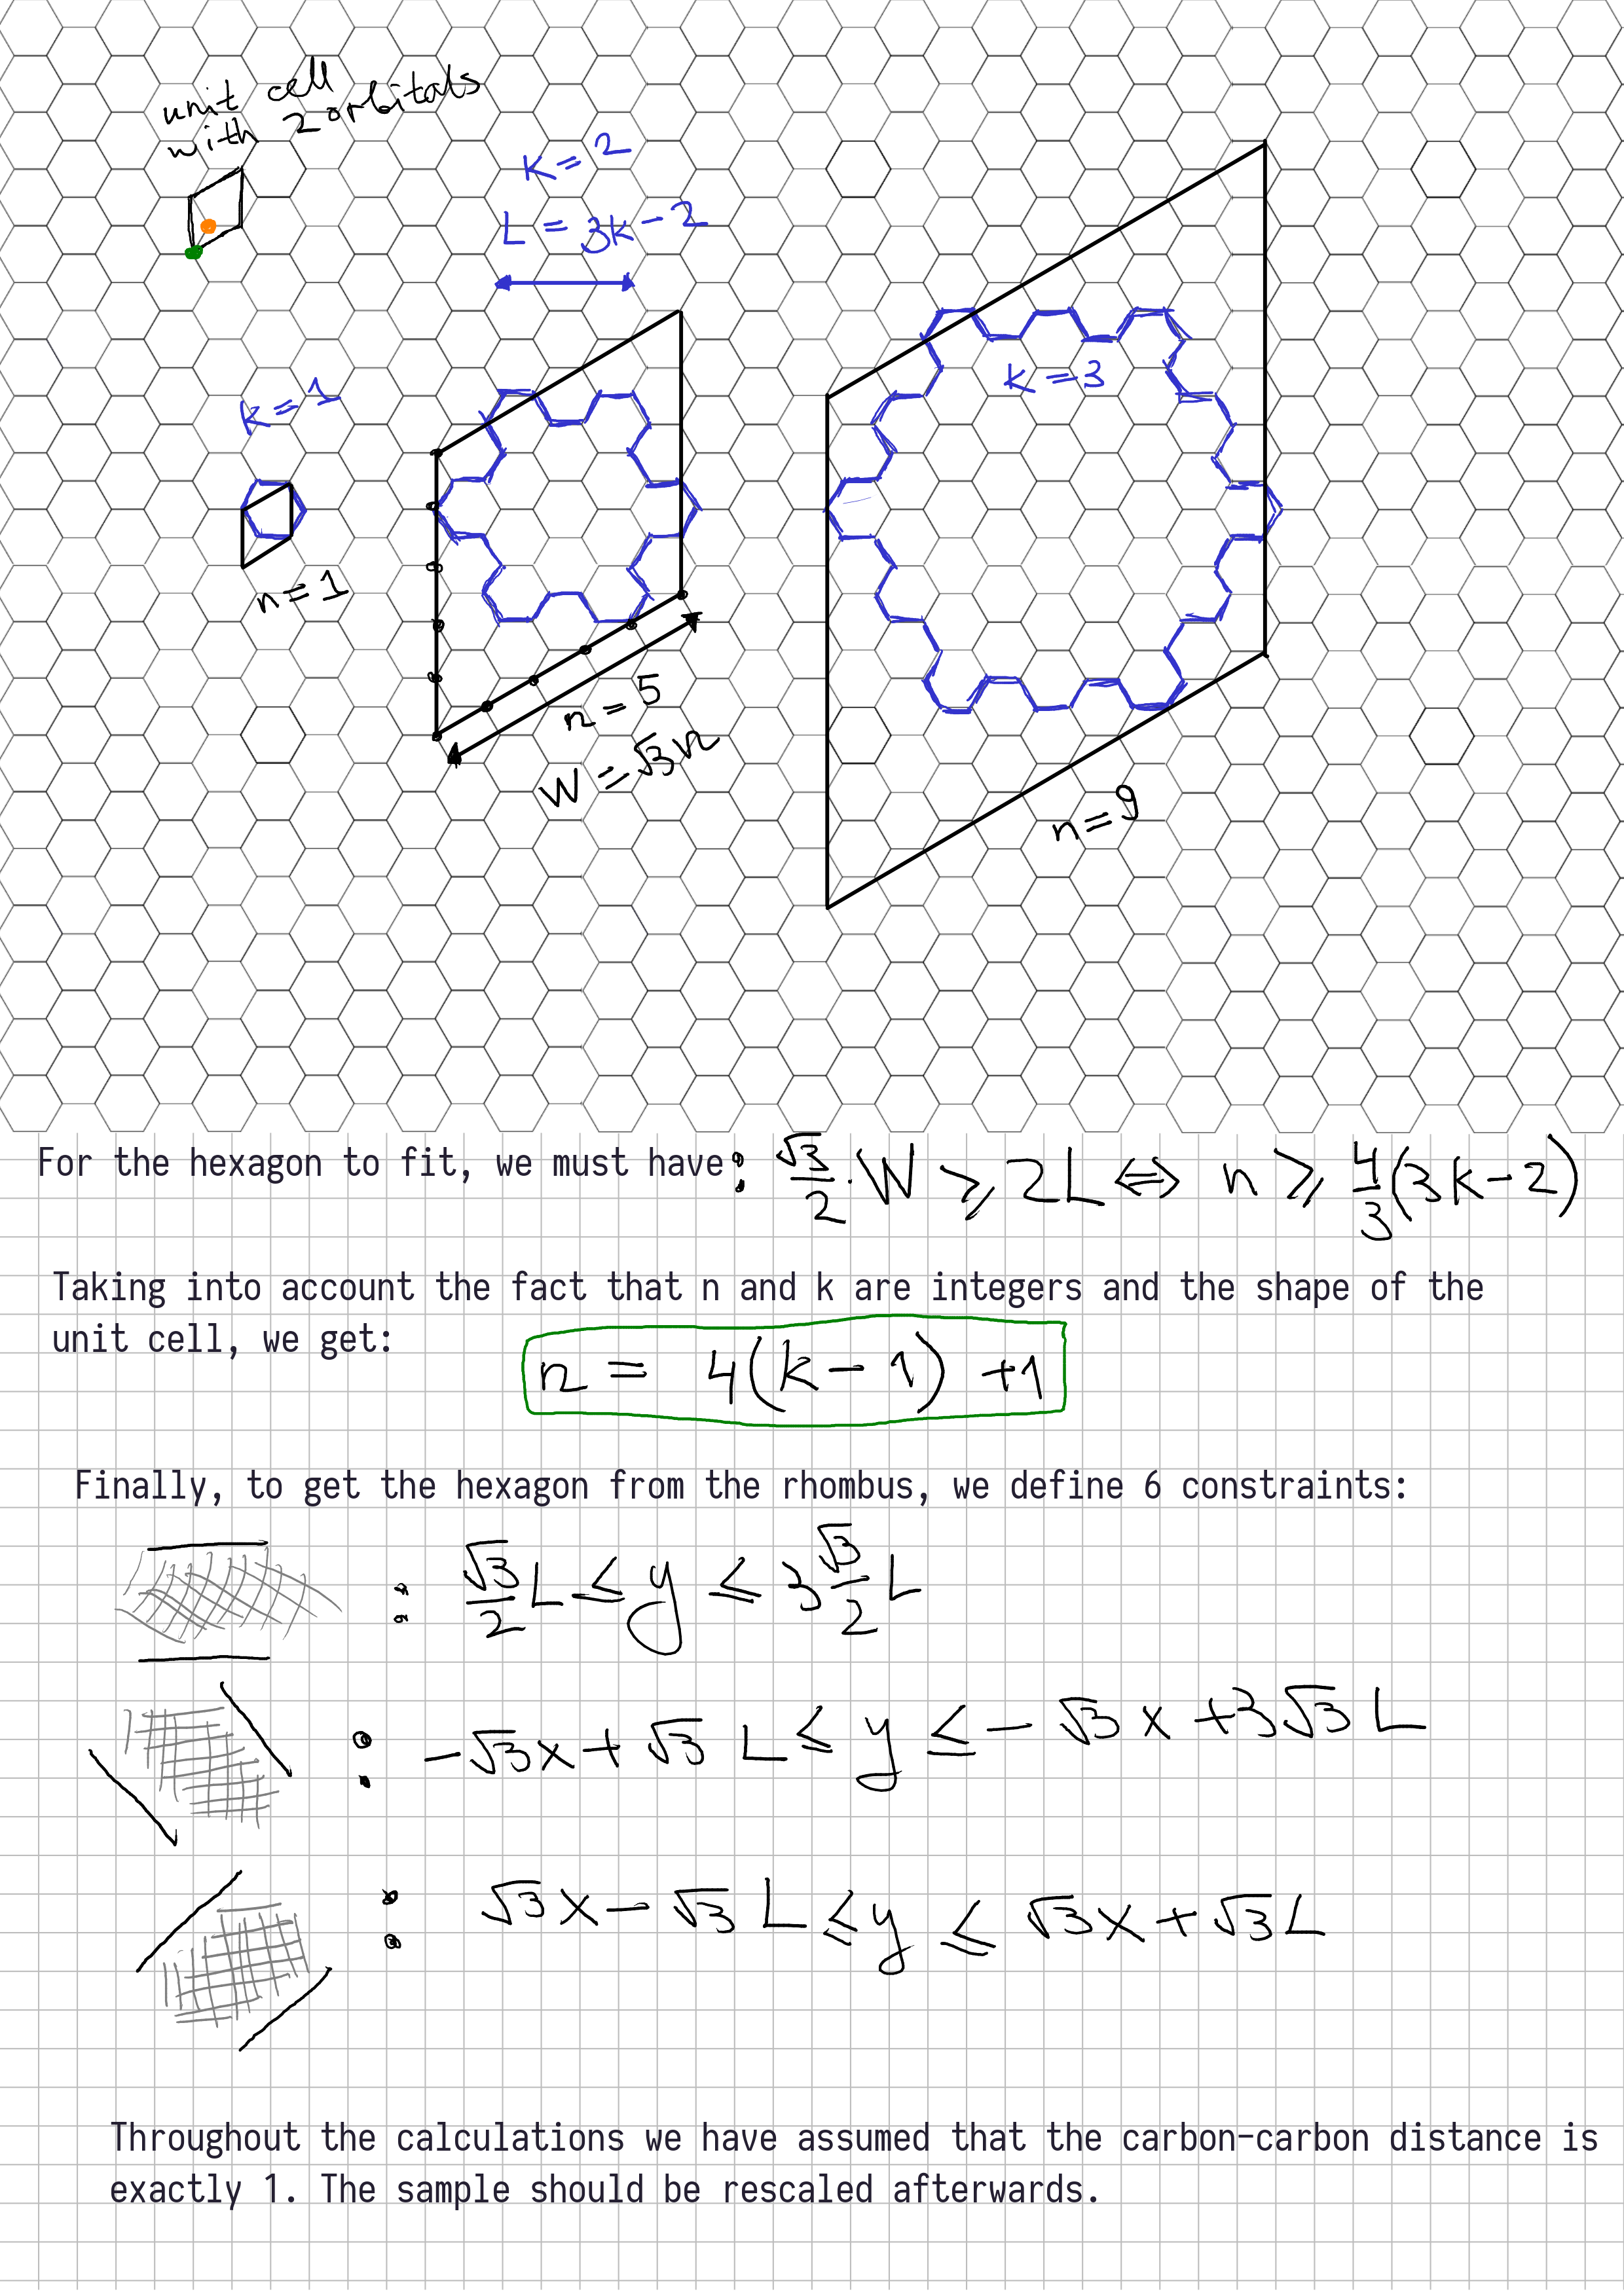 unit cell
with 2 orbitals
K = 2
L = 3k - 2
k = 1
n = 1
n = 5
W = √3 n
k = 3
n = 9
For the hexagon to fit, we must have: √3/2 · W ⩾ 2L ⇔ n ⩾ 4/3 (3k - 2)
Taking into account the fact that n and k are integers and the shape of the
unit cell, we get:
n = 4(k - 1) + 1
Finally, to get the hexagon from the rhombus, we define 6 constraints:
: √3/2 L ≤ y ≤ 3 √3/2 L
: -√3 x + √3 L ≤ y ≤ - √3 x + 3√3 L
: √3 x - √3 L ≤ y ≤ √3 x + √3 L
Throughout the calculations we have assumed that the carbon-carbon distance is
exactly 1. The sample should be rescaled afterwards.